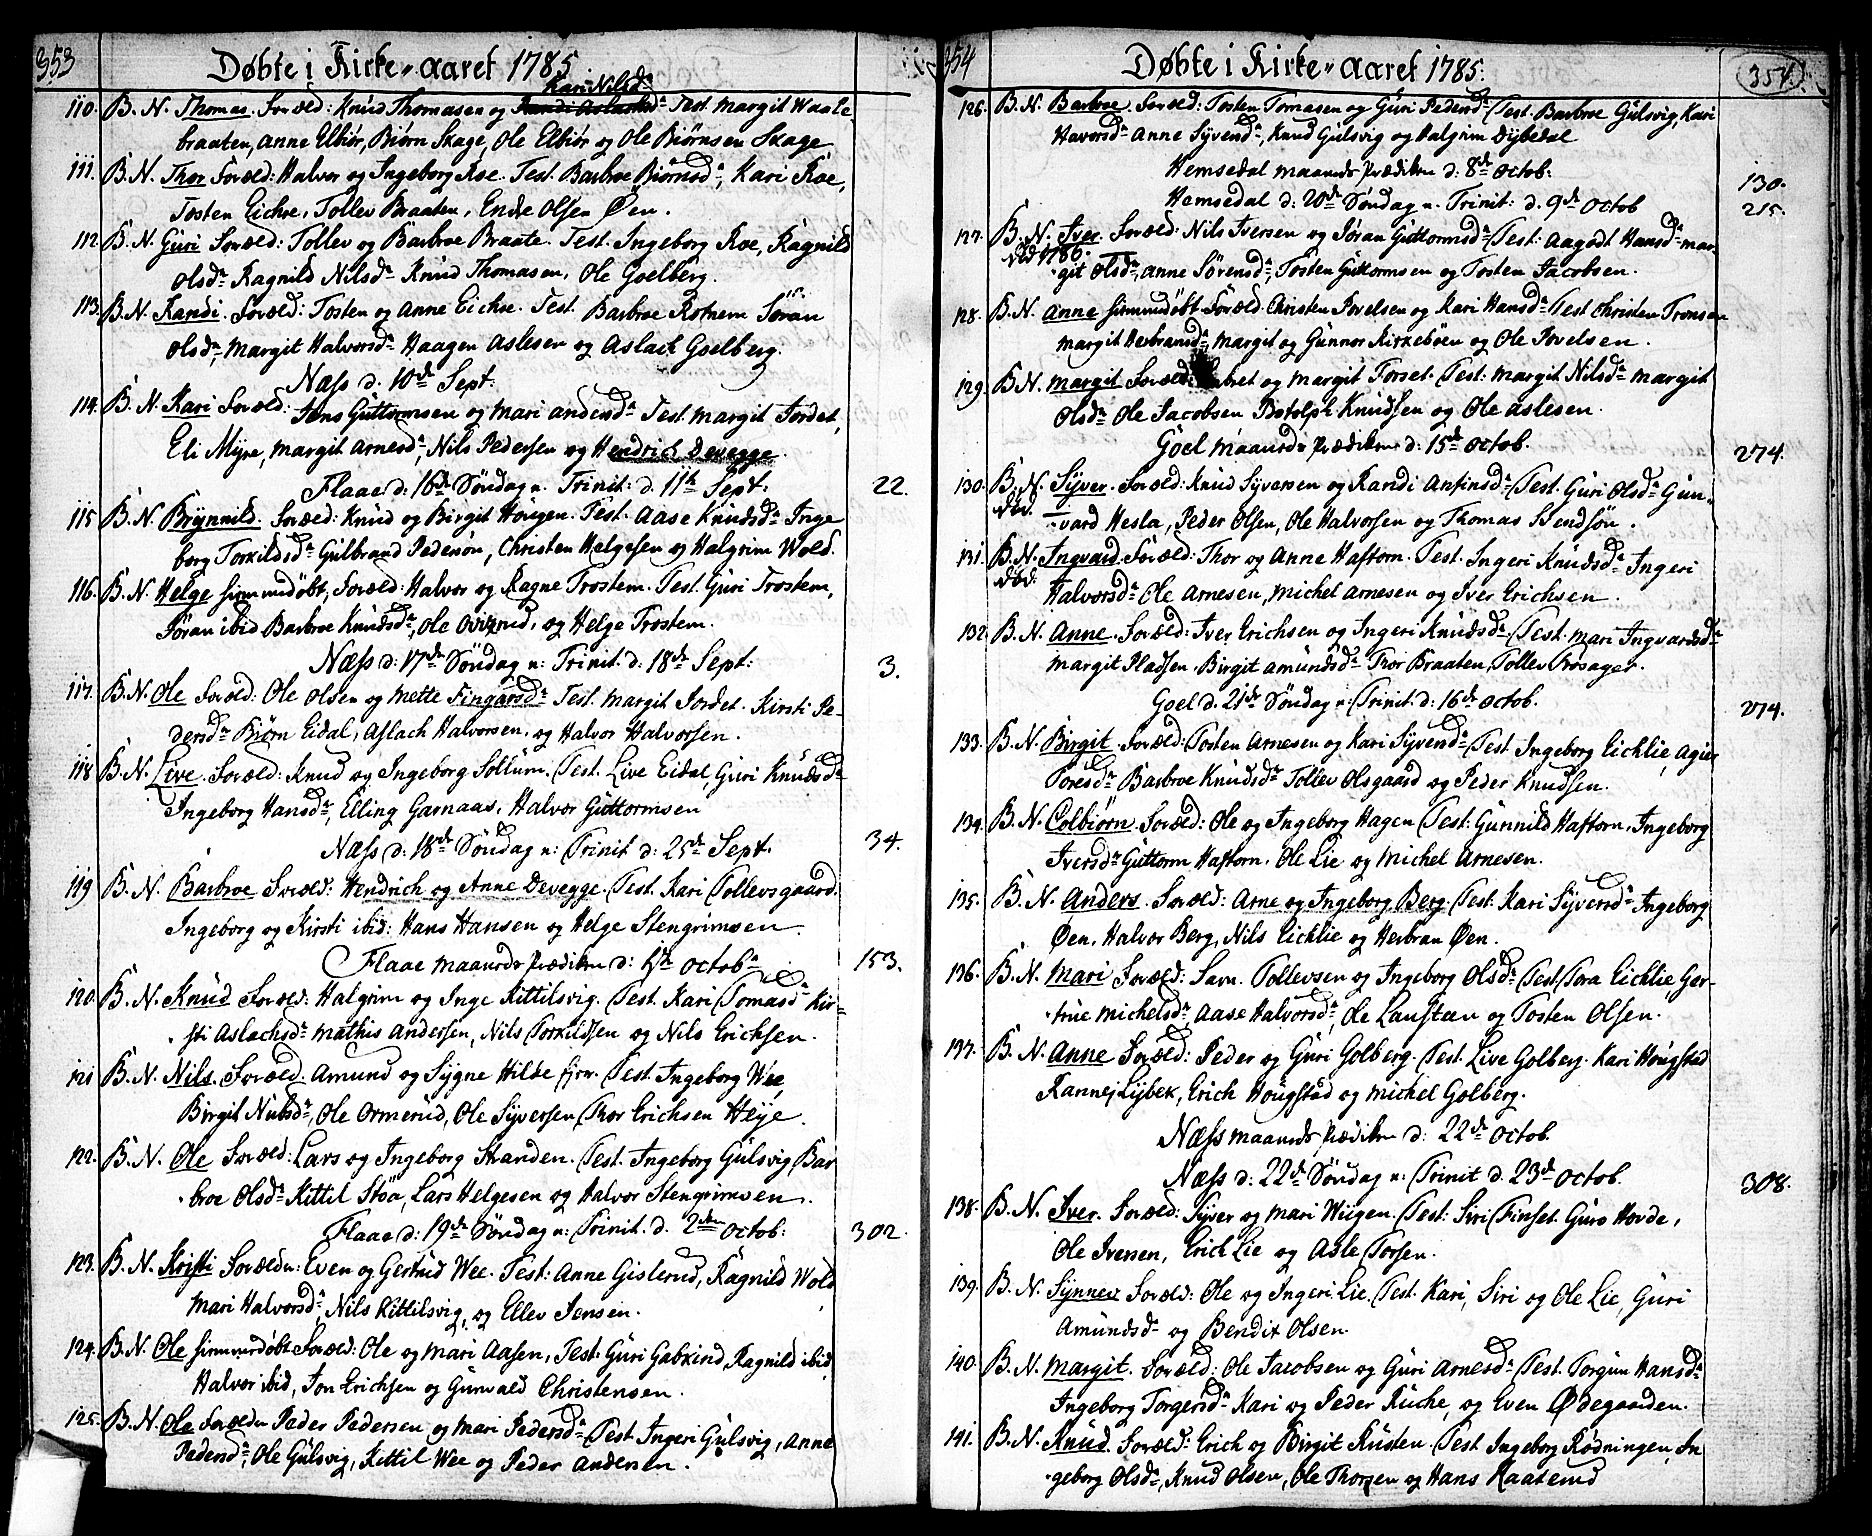 353
Døbte i Kirke-Aaret 1785.
Kari Nilsd.
110. B. N. Thomas. Foræld: Knud Thomasen og Randi Aslachsd. Test. Margit Waale-
braaten, Anne Elbiør, Biørn Skage, Ole Elbiør og Ole Biørnsen Skage
111. B. N. Thor Foræld: Halvor og Ingeborg Roe. Test. Barbroe Biørnsd., Kari Roe,
Tosten Eichre, Tollev Braaten, Endre Olsen Øen.
112. B. N. Guri Foræld: Tollev og Barbroe Braate. Test. Ingeborg Roe, Ragnild
Olsd. Ragnild Nilsd. Knud Thomasen, Ole Goelberg.
113. B. N. Randi. Foræld: Tosten og Anne Eichre. Test. Barbroe Rotnem Jøran
Olsd., Margit Halvorsd. Haagen Aslesen og Aslach Goelberg.
Næss d. 10de Sept.
114. B. N. Kari Foræld: Jens Guttormsen og Mari Andersd. Test. Margit Jordet,
Eli Myre, Margit Arnesd., Nils Pedersen og Hendrich Devegge.
Flaae d: 16de Søndag n. Trinit: d. 11te Sept. 22.
115 B. N. Brynnild. Foræld: Knud og Birgit Hougen. Test. Aase Knudsd. Inge
borg Torkildsd. Gulbrand Pedersøn, Christen Helgesen og Halgrim Wold.
116. B. N. Helge hiemmedøbt, Foræld: Halvor og Ragne Trostem. Test. Guri Trostem,
Jøran ibid Barbroe Knudsd., Ole Oviʒrud, og Helge Trostem.
Næss d: 17de Søndag n: Trinit. d: 18de Sept: 3.
117. B. N. Ole Foræld. Ole Olsen og Mette Fingarsd. Test. Margit Jordet. Kirsti Pe-
dersd. Biørn Eidal, Aslach Halvorsen, og Halvor Halvorsen.
118 B. N. Live. Foræld: Knud og Ingeborg Sollum. Test. Live Eidal, Guri Knudsd.
Ingeborg Hansd., Elling Garnaas, Halvor Guttormsen
Næss d: 18de Søndag n: Trinit d: 25de Sept. 34.
119 B. N. Barbroe Foræld: Hendrich og Anne Devegge. Test. Kari Tollevsgaard.
Ingeborg og Kirsti ibid: Hans Hansen og Helge Stengrimsen.
Flaae Maaneds Prædiken d: 1ste Octob. 153.
120. B. N. Knud Foræld: Halgrim og Inge Kittilsvig. Test. Kari Tomasd. Kir-
sti Aslachsd. Mathis Andersen, Nils Torkildsen og Nils Erichsen.
121 B. N. Nils. Foræld. Amund og Sygne Hilde Test. Ingeborg Wee
Birgit Nubsd., Ole Ormerud, Ole Syversen, Thor Erichsen Heje.
122. B. N. Ole Foræld: Lars og Ingeborg Stranden. Test. Ingeborg Gulsvig, Bar
broe Olsd. Kittil Støa, Lars Helgesen og Halvor Stengrimsen.
Flaae d: 19de Søndag n: Trinit. d. 2den Octob: 302.
123. B. N. Kristi Forældn: Even og Gertrud Wee. Test: Anne Gislerud, Ragnild Wold
Mari Halvorsd., Nils Kittilsvig, og Ellev Jensen.
124. B. N. Ole hiemmedøbt Foræld: Ole og Mari Aasen, Test: Guri Gabriud, Ragnild ibid,
Halvor ibid, Jon Erichsen og Gunvald Christensen.
125. B. N. Ole Foræld Peder Pedersen og Mari Pedersd. Test Ingeri Gulsvig, Anne
Pedersd., Ole Gulsvig, Kittil Wee og Peder Andersen.
354
Døbte i Kirke-Aaret 1785. 354.
126. B. N. Barbroe. Foræld: Tosten Tomasen og Guri Pedersd. Test. Barbroe Gulsvig, Kari
Havorsd. Anne Syversd., Knud Gulsvig og Halgrim Dybedal
Hemsedal Maaneds Prædiken d: 8de Octob: 130.
Hemsedal d: 20de Søndag n. Trinit: d. 9de Octob 215.
127. B. N. Iver Foræld: Nils Iversen og Jøran Guttormsd. Test: Aagodt Hansd. Mar-
død 1786. git Olsd., Anne Sørensd., Tosten Guttormsen og Tosten Jacobsen.
128. B. N. Anne hiemmedøbt Foræld. Christen Povelsen og Kari Hansd. Test Christen Tronsen
Margit Herbransd., Margit og Gunnor Kirkebøen og Ole Povelsen.
129. B. N. Margit Foræld: Embret og Margit Torset. Test: Margit Nilsd. Margit
Olsd. Ole Jacobsen Botolph Knudsen og Ole Aslesen.
Goel Maaneds Prædiken d: 15de Octob. 274.
130. B. N. Syver. Foræld: Knud Syversen og Randi Anfinsd. Test. Guri Olsd. Gun-
død. vard Hesla, Peder Olsen, Ole Halvorsen og Thomas Svendsøn.
131. B. N. Ingvard. Foræld: Thor og Anne Haftorn. Test. Ingeri Knudsd. Ingeri
død. Halvorsd. Ole Arnesen, Michel Arnesen og Iver Erichsen.
132 B. N. Anne. Foræld: Iver Erichsen og Ingeri Knudsd. Test. Mari Ingvardsd.
Margit Pladsen. Birgit Amundsd. Thor Braaten, Tollev Trosager.
Goel d. 21de Søndag n. Trinit. d: 16de Octob. 274.
133. B. N. Birgit. Foræld: Tosten Arnesen og Kari Syversd. Test Ingeborg Eichlie, Agier
Toresd. Barbroe Knudsd. Tollev Olsgaard og Peder Knudsen.
134. B. N. Colbiørn. Foræld: Ole og Ingeborg Hagen Test: Gunnild Haftorn, Ingeborg
Iversd. Guttorm Haftorn. Ole Lie og Michel Arnesen.
135. B. N. Anders. Foræld: Arne og Ingeborg Berg. Test: Kari Syversd. Ingeborg
Øen, Halvor Berg, Nils Eichlie og Herbran Øen.
136. B. N. Mari Foræld: Savn. Tollevsen og Ingeborg Olsd. Test. Tora Eichlie, Ger-
true Michelsd. Aase Halvorsd., Ole Laustæn og Tosten Olsen.
137. B. N. Anne Foræld: Peder og Guri Golberg. Test. Live Golberg. Kari Hougstad
Rannej Lybek, Erich Hougstad og Michel Golberg.
Næss Maaneds Prædiken d: 22de Octob.
Næss d. 22de Søndag n: Trinit d. 23de Octob. 308.
138. B. N. Iver. Foræld: Syver og Mari Wiigen. Test: Siri Finset. Guro Hovde,
Ole Iversen, Erich Lie og Asle Torsen.
139. B. N. Synnev Foræld: Ole og Ingeri Lie. Test. Kari, Siri og Ole Lie, Guri
Amundsd. og Bendix Olsen.
140. B. N. Margit. Foræld: Ole Jacobsen og Guri Arnesd. Test. Torgun Hansd.
Ingeborg Torgersd. Kari og Peder Ruche, og Even Ødegaarden.
141. B. N. Knud. Foræld: Erich og Birgit Rusten. Test Ingeborg Rødningen, In
geborg Olsd., Knud Olsen, Ole Thorsen og Hans Kaaserud